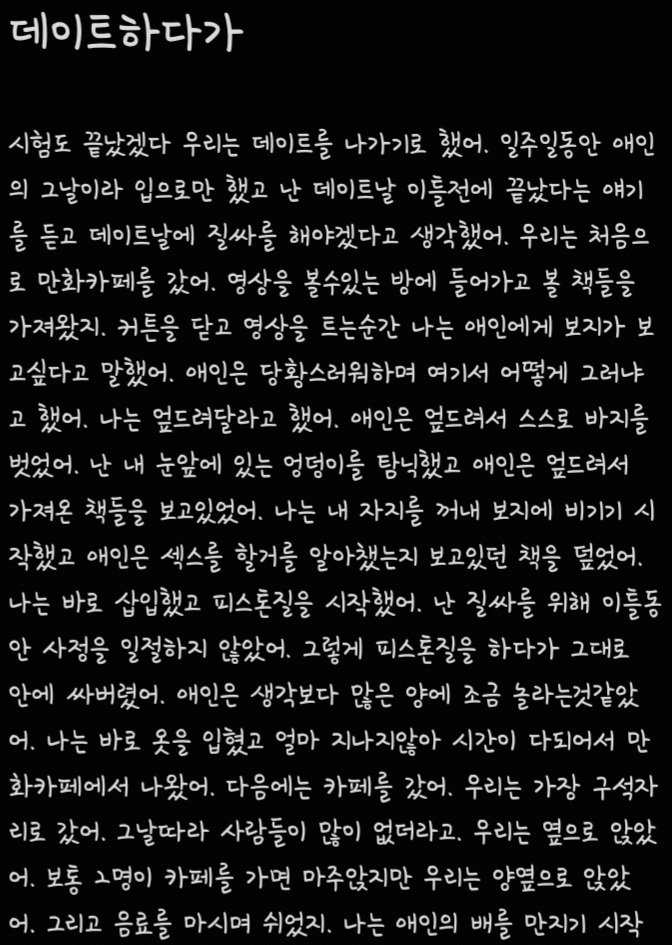 데이트하다가
시험도 끝났겠다 우리는 데이트를 나가기로 했어. 일주일동안 애인
의 그날이라 입으로만 했고 난 데이트날 이틀전에 끝났다는 얘기
를 듣고 데이트날에 질싸를 해야겠다고 생각했어. 우리는 처음으
로 만화카페를 갔어. 영상을 볼수있는 방에 들어가고 볼 책들을
가져왔지. 커튼을 닫고 영상을 트는순간 나는 애인에게 보지가 보
고싶다고 말했어. 애인은 당황스러워하며 여기서 어떻게 그러냐
고 했어. 나는 엎드려달라고 했어. 애인은 엎드려서 스스로 바지를
벗었어. 난 내 눈앞에 있는 엉덩이를 탐닉했고 애인은 엎드려서
가져온 책들을 보고있었어. 나는 내 자지를 꺼내 보지에 비기기 시
작했고 애인은 섹스를 할거를 알아챘는지 보고있던 책을 덮었어.
나는 바로 삽입했고 피스톤질을 시작했어. 난 질싸를 위해 이틀동
안 사정을 일절하지 않았어. 그렇게 피스톤질을 하다가 그대로
안에 싸버렸어. 애인은 생각보다 많은 양에 조금 놀라는것같았
어. 나는 바로 옷을 입혔고 얼마 지나지않아 시간이 다되어서 만
화카페에서 나왔어. 다음에는 카페를 갔어. 우리는 가장 구석자
리로 갔어. 그날따라 사람들이 많이 없더라고. 우리는 옆으로 앉았
어. 보통 2명이 카페를 가면 마주앉지만 우리는 양옆으로 앉았
어. 그리고 음료를 마시며 쉬었지. 나는 애인의 배를 만지기 시작